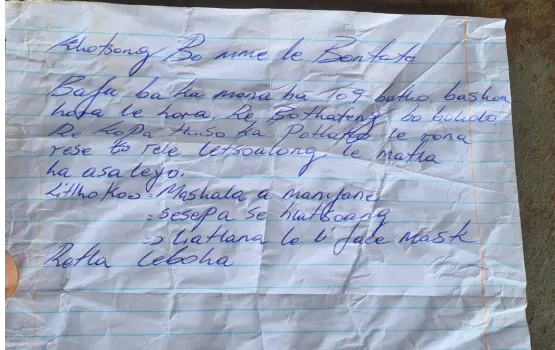 Khotsong Bo mme le Bontate
Bafu ba ka mona ba 109 batho, bashoa
hora le hora, Re Bothateng bo boholo
Re Kopa thuso ka Potlako le rona
rese re le letsoalong le matla
ha asaleyo.
Litlhoko: Mashala a manyane
: Sesepa se hlatsoang
: liatlana le li face mask
Retla leboha